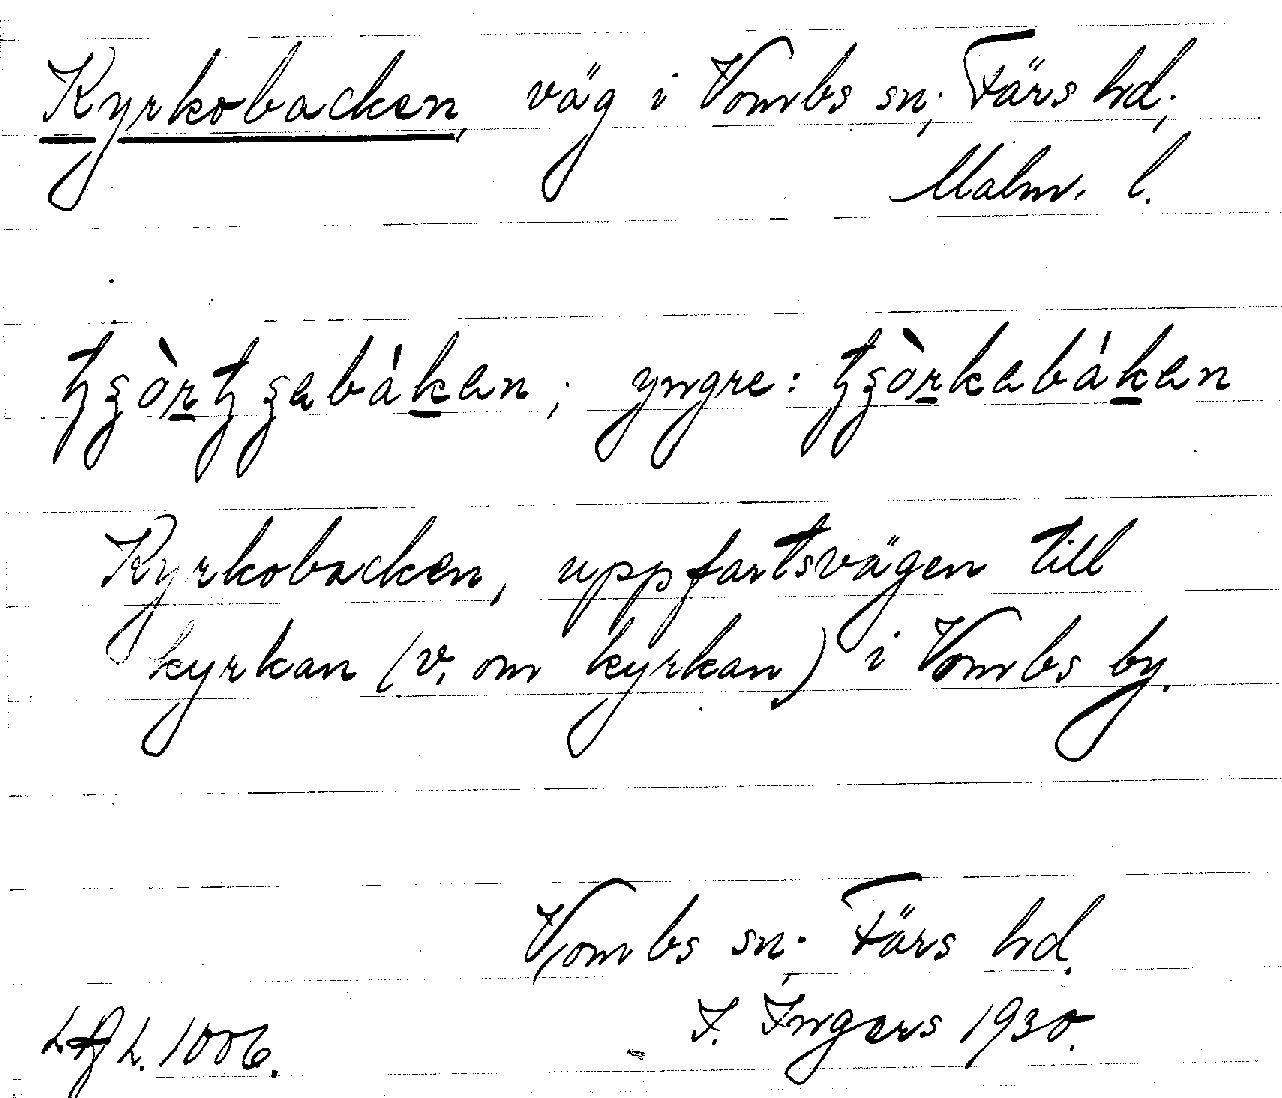 Kyrkobacken, väg i Vombs sn; Färs hd;
Malm. l.
yngre:
Kyrkobacken, uppfartsvägen till
kyrkan (v. om kyrkan) i Vombs by.
Vombs sn. Färs hd.
I. Ingers 1930.
1006.